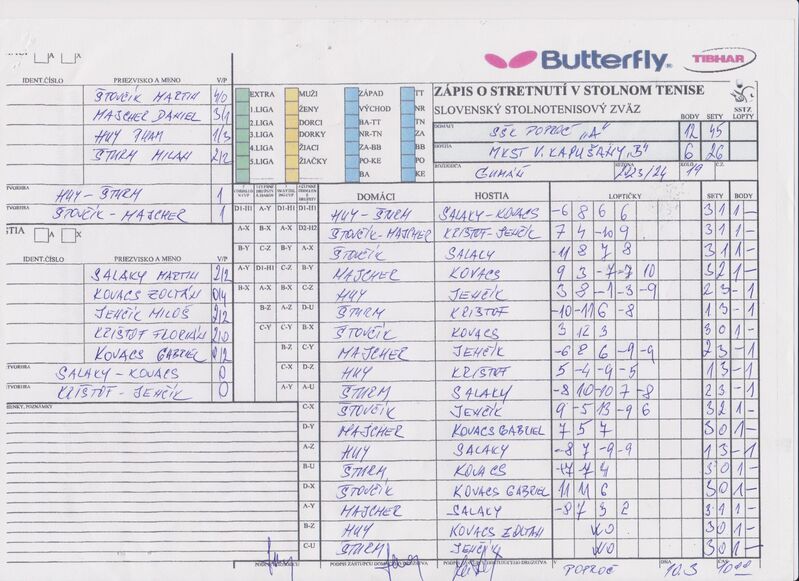 A X
Butterfly
TIBHAR
IDENT.ČÍSLO PRIEZVISKO A MENO V/P
ŠTOVČÍK MARTIN 4/0
MAJCHER DANIEL 3/1
HUY PHAM 1/3
ŠTURM MILAN 2/2
HUY - ŠTURM 1
ŠTOVČÍK - MAJCHER 1
A X
IDENT.ČÍSLO PRIEZVISKO A MENO V/P
SALAKY MARTIN 2/2
KOVACS ZOLTÁN 0/4
JENČÍK MILOŠ 2/2
KRIŠTOF FLORIÁN 2/0
KOVACS GABRIEL 0/2
SALAKY - KOVACS 0
KRIŠTOF - JENČÍK 0
EXTRA MUŽI ZÁPAD TT
1.LIGA ŽENY VÝCHOD NR
2.LIGA DORCI BA-TT TN
3.LIGA DORKY NR-TN ZA
4.LIGA ŽIACI ZA-BB BB
5.LIGA ŽIAČKY PO-KE PO
BA KE
ZÁPIS O STRETNUTÍ V STOLNOM TENISE
SLOVENSKÝ STOLNOTENISOVÝ ZVÄZ
SSTZ
BODY SETY LOPTY
DOMÁCI SŠK POPROČ „A" 12 45
HOSTIA MKST V. KAPUŠANY „B" 6 26
ROZHODCA GUMÁN SEZÓNA 2023/24 KOLO 19 Č.Z.
DOMÁCI HOSTIA LOPTIČKY SETY BODY
D1-H1 A-Y D1-H1 D1-H1 HUY - ŠTURM SALAKY - KOVACS -6 8 6 6 3 1 1 -
A-X B-X A-X D2-H2 ŠTOVČÍK - MAJCHER KRIŠTOF - JENČÍK 7 4 -10 9 3 1 1 -
B-Y C-Z B-Y A-X ŠTOVČÍK SALAKY -11 8 7 8 3 1 1 -
A-Y D1-H1 C-Z B-Y MAJCHER KOVACS 9 3 -7 -7 10 3 2 1 -
B-X A-X A-X C-Z HUY JENČÍK 3 8 -1 -3 -9 2 3 - 1
B-Z A-Z D-U ŠTURM KRIŠTOF -10 -11 6 -8 1 3 - 1
C-Y C-Y B-X ŠTOVČÍK KOVACS 3 12 3 3 0 1 -
B-Z C-Y MAJCHER JENČÍK -6 8 6 -9 -9 2 3 - 1
C-X D-Z HUY KRIŠTOF 5 -4 -9 -5 1 3 - 1
A-Y A-U ŠTURM SALAKY -8 10 -10 7 -8 2 3 - 1
C-X ŠTOVČÍK JENČÍK 9 -5 13 -9 6 3 2 1 -
D-Y MAJCHER KOVACS GABRIEL 7 5 7 3 0 1 -
A-Z HUY SALAKY -8 7 -9 -9 1 3 - 1
B-U ŠTURM KOVACS 3 0 1 -
D-X ŠTOVČÍK KOVACS GABRIEL 11 11 6 3 0 1 -
A-Y MAJCHER SALAKY -8 7 3 2 3 1 1 -
B-Z HUY KOVACS ZOLTAN WO 3 0 1 -
C-U ŠTURM JENČÍK WO 3 0 1 -
V POPROČ DŇA 10.3 ČAS 10:00